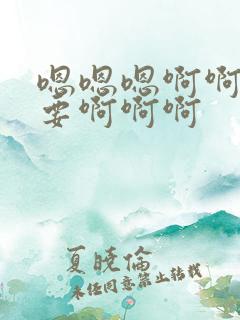 嗯嗯嗯啊啊
要啊啊啊
夏晓倫
未经同意禁止转载